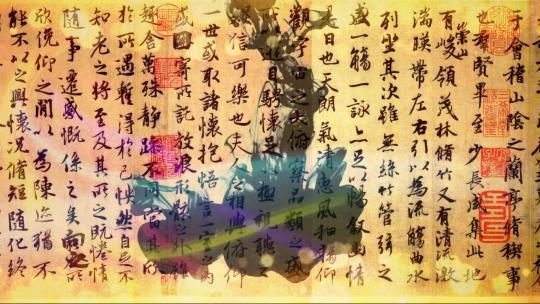 于會稽山陰之蘭亭脩禊事
也羣賢畢至少長咸集此地
有崇山峻領茂林脩竹又有清流激
湍暎帶左右引以為流觴曲水
列坐其次雖無絲竹管弦之
盛一觴一詠亦足以暢敘幽情
是日也天朗氣清惠風和暢仰
觀宇宙之大俯察品類之盛
所以目騁懷足以極視聽之
娛信可樂也夫人之相與俯仰
一世或取諸懷抱悟言一室之內
或因寄所託放浪形骸之外雖
趣舍萬殊靜躁不同當其欣
於所遇暫得於己怏然自足不
知老之將至及其所之既惓情
隨事遷感慨係之矣向之所
欣俛仰之間以為陳迹猶不
能不以之興懷況脩短隨化終